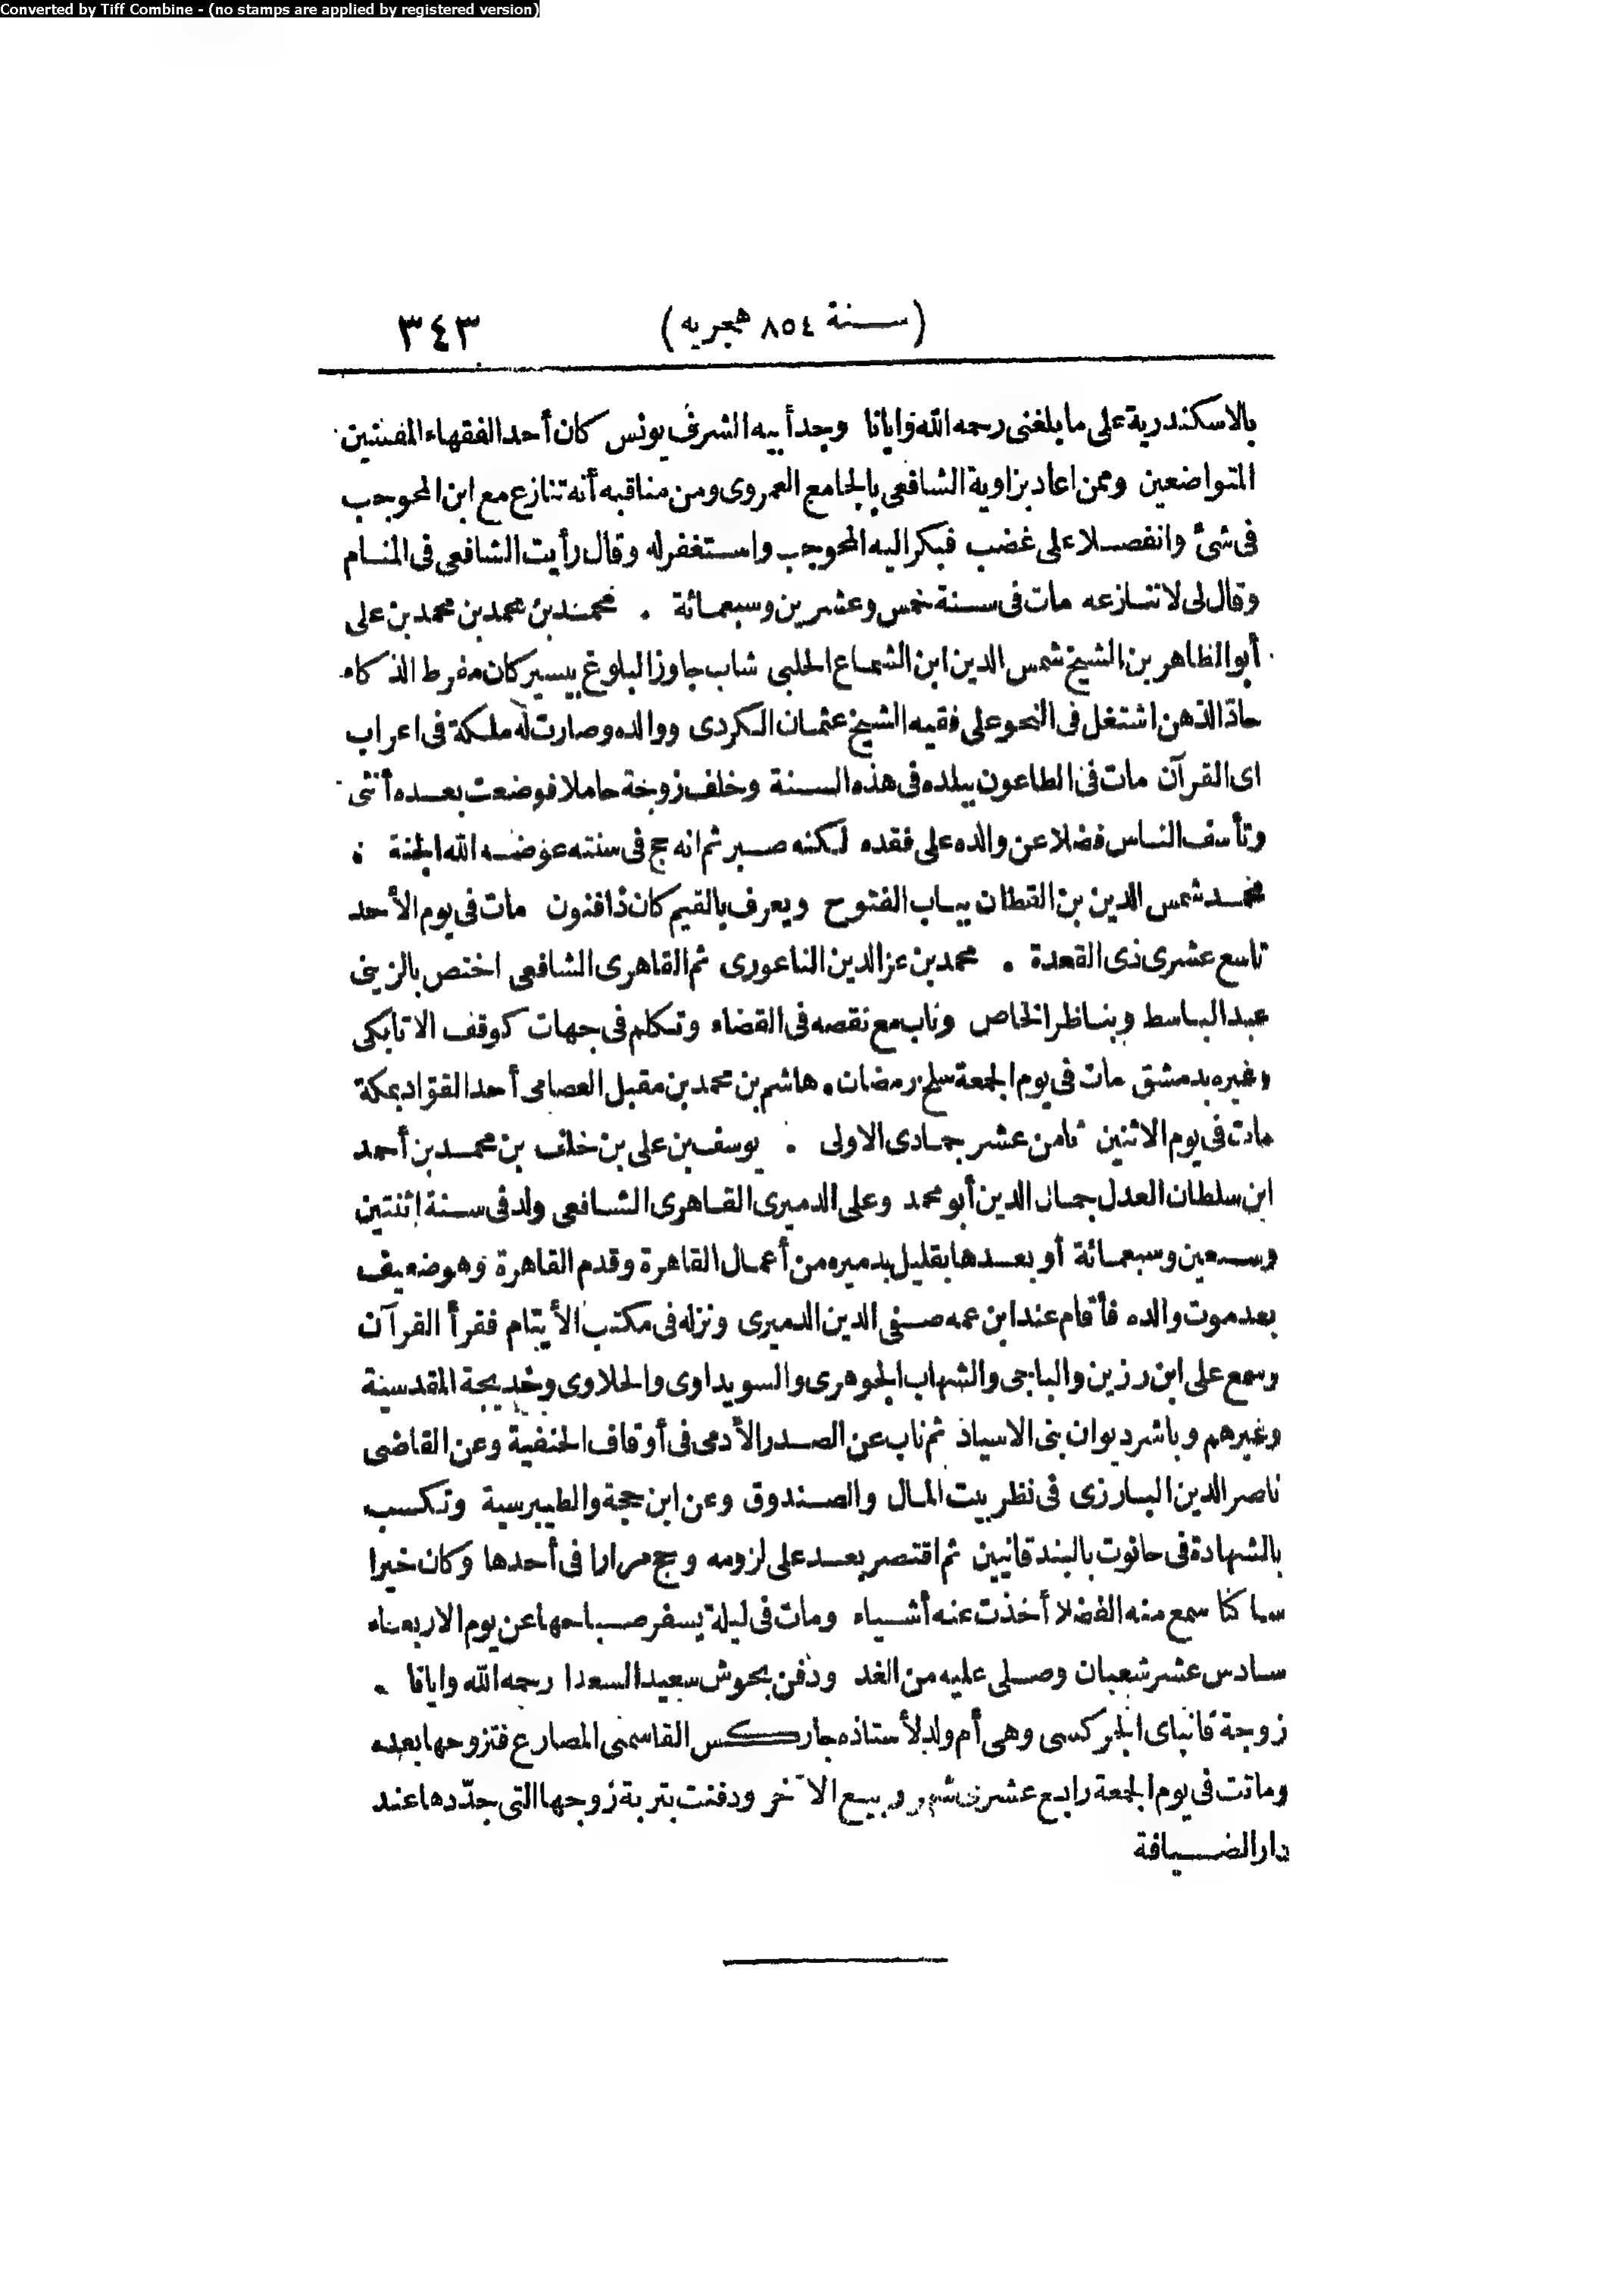 Converted by Tiff Combine - (no stamps are applied by registered version)
(سنة ٨٥٤ هجريه) ٣٤٣
بالاسكندرية على ما بلغنى رحمه الله وايانا وجد أبيه الشرف يونس كان أحد الفقهاء المفتيين
المتواضعين وممن اعاد بزاوية الشافعى بالجامع العمروى ومن مناقبه أنه تنازع مع ابن المحوجب
فى شئ وانفصلا على غضب فبكر اليه المحوجب واستغفر له وقال رأيت الشافعى فى المنام
وقال لى لا تنازعه مات فى سنة خمس وعشرين وسبعمائة . محمد بن محمد بن محمد بن على
أبو الظاهر بن الشيخ شمس الدين ابن الشماع الحلبى شاب جاوز البلوغ بيسير كان مفرط الذكاء
حاد الذهن اشتغل فى النحو على فقيه الشيخ عثمان الكردى ووالده وصارت له ملكة فى اعراب
اى القرآن مات فى الطاعون ببلده فى هذه السنة وخلف زوجة حاملا فوضعت بعده أنثى
وتأسف الناس فضلا عن والده على فقده لكنه صبر ثم انه حج فى سنته عوضه الله الجنة .
محمد شمس الدين بن القطان بباب الفتوح ويعرف بالقيم كان ذا فنون مات فى يوم الأحد
تاسع عشرى ذى القعدة . محمد بن عز الدين الناعورى ثم القاهرى الشافعى اختص بالزينى
عبد الباسط وبناظر الخاص وناب مع نقصه فى القضاء وتكلم فى جهات كوقف الاتابكى
وغيره بدمشق مات فى يوم الجمعة سلخ رمضان . هاشم بن محمد بن مقبل العصامى أحد القواد بمكة
مات فى يوم الاثنين ثامن عشر جمادى الاولى . يوسف بن على بن خلف بن محمد بن أحمد
ابن سلطان العدل جمال الدين أبو محمد وعلى الدميرى القاهرى الشافعى ولد فى سنة اثنتين
وسبعين وسبعمائة أو بعدها بقليل بدميره من أعمال القاهرة وقدم القاهرة وهو ضعيف
بعد موت والده فأقام عند ابن عمه صفى الدين الدميرى ونزله فى مكتب الأيتام فقرأ القرآن
وسمع على ابن رزين والباجى والشهاب الجوهرى والسويداوى والحلاوى وخديجة المقدسية
وغيرهم وباشر ديوان بنى الاسياد ثم ناب عن الصدر الأدمى فى أوقاف الحنفية وعن القاضى
ناصر الدين البارزى فى نظر بيت المال والصندوق وعن ابن حجة والطيبرسية وتكسب
بالشهادة فى حانوت بالبندقانيين ثم اقتصر بعد على لزومه وحج مرارا فى أحدها وكان خيرا
ساكنا سمع منه الفضلا أخذت عنه أشياء ومات فى ليلة يسفر صباحها عن يوم الاربعاء
سادس عشر شعبان وصلى عليه من الغد ودفن بحوش سعيد السعدا رحمه الله وايانا .
زوجة قانباى الجركسى وهى أم ولد لأستاذه جاركس القاسمى المصارع فتزوجها بعده
وماتت فى يوم الجمعة رابع عشر شهر ربيع الآخر ودفنت بتربة زوجها التى جدّدها عند
دار الضيافة